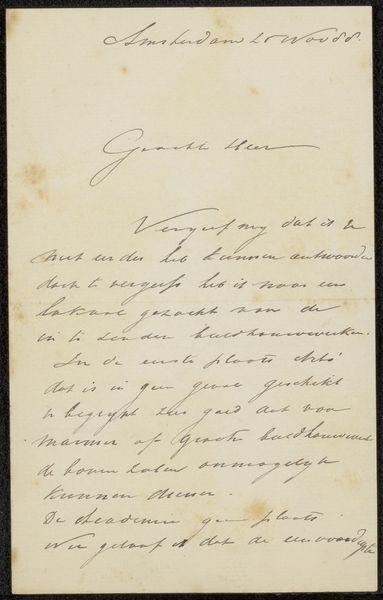 Amsterdam 25 Nov 88.
Geachte Heer
Vergeef mij dat ik U
niet eerder heb kunnen antwoorden
doch te vergeefs heb ik naar een
lokaal gezocht voor de
in te zenden beeldhouwwerken.
In de eerste plaats Arti
dat is in geen geval geschikt
U begrijpt zeer goed dat voor
marmer of groote beeldhouwwerk
de boven zalen onmogelijk
kunnen dienen.
De Academie geen plaats.
Nu geloof ik dat de eenvoudigste